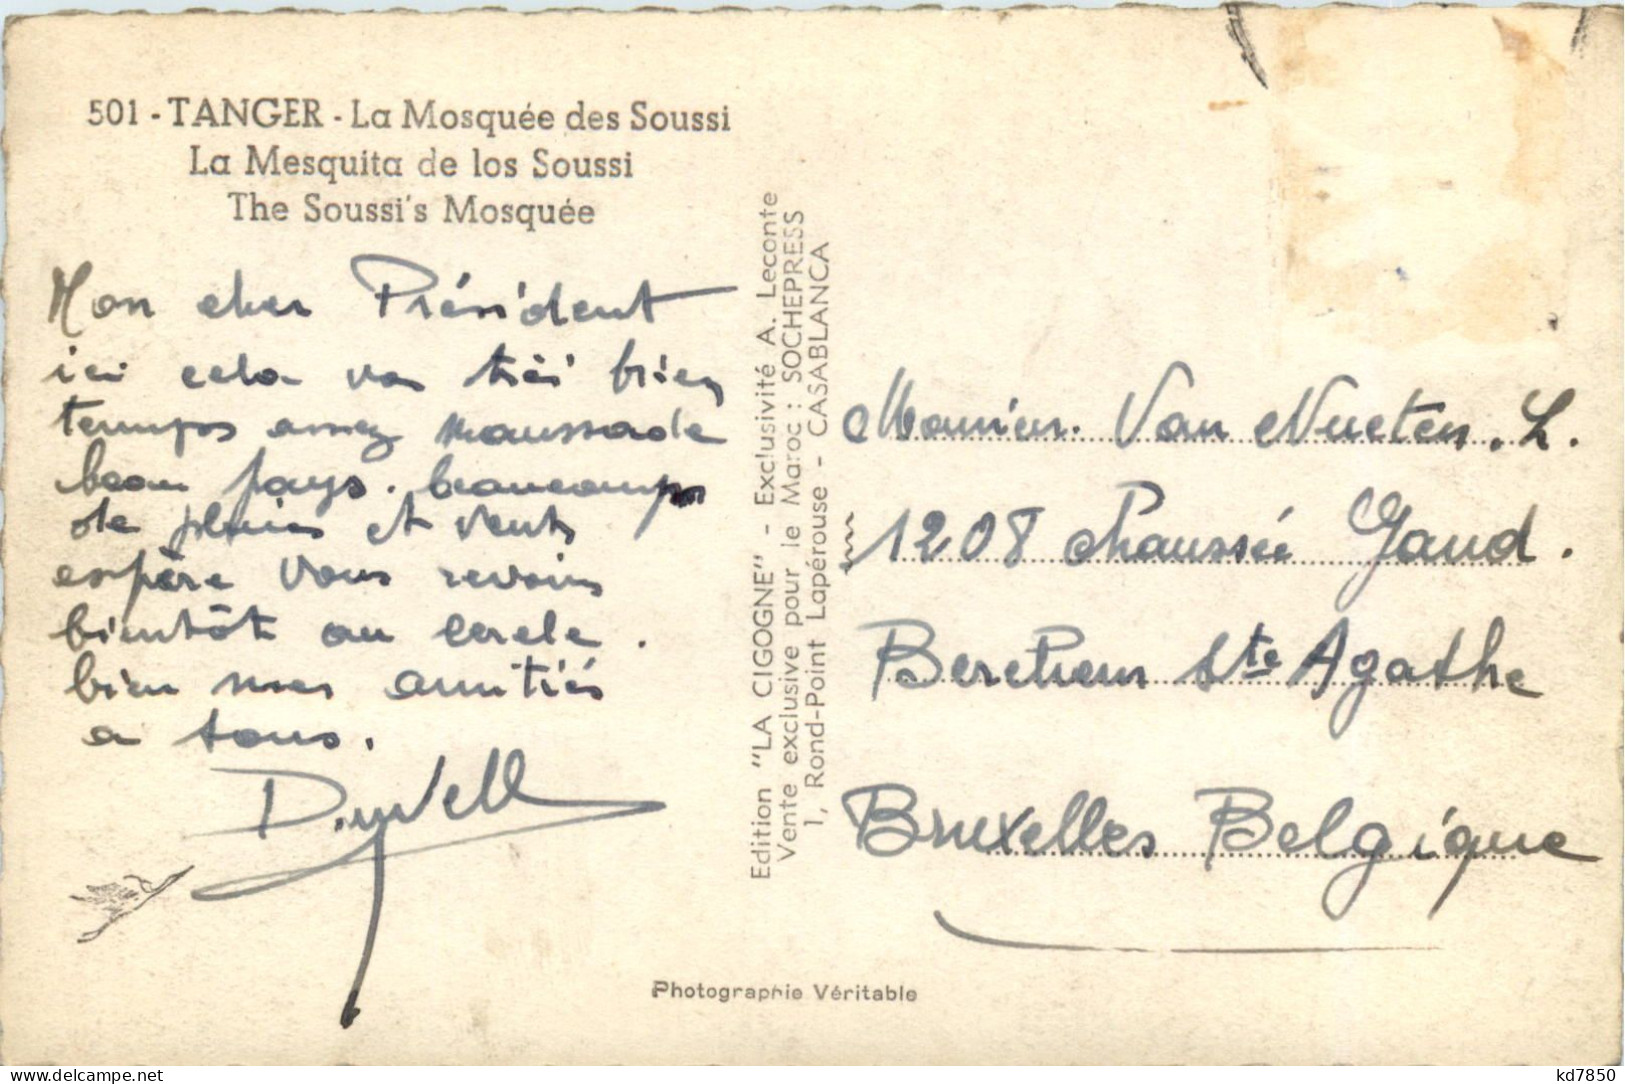 501 - TANGER - La Mosquée des Soussi
La Mesquita de los Soussi
The Soussi's Mosquée
Mon cher Président
ici cela va très bien
temps assez maussade
beau pays. beaucoup
de pluies et vents
espère vous revoir
bientôt au cercle.
bien mes amitiés
a tous.
Edition "LA CIGOGNE" - Exclusivité A. Leconte
Vente exclusive pour le Maroc : SOCHEPRESS
1, Rond-Point Lapérouse - CASABLANCA
Monsieur. Van Nueten. L.
1208 Chaussée Gand.
Berchem Ste Agathe
Bruxelles Belgique
Photographie Véritable
delcampe.net
kd7850